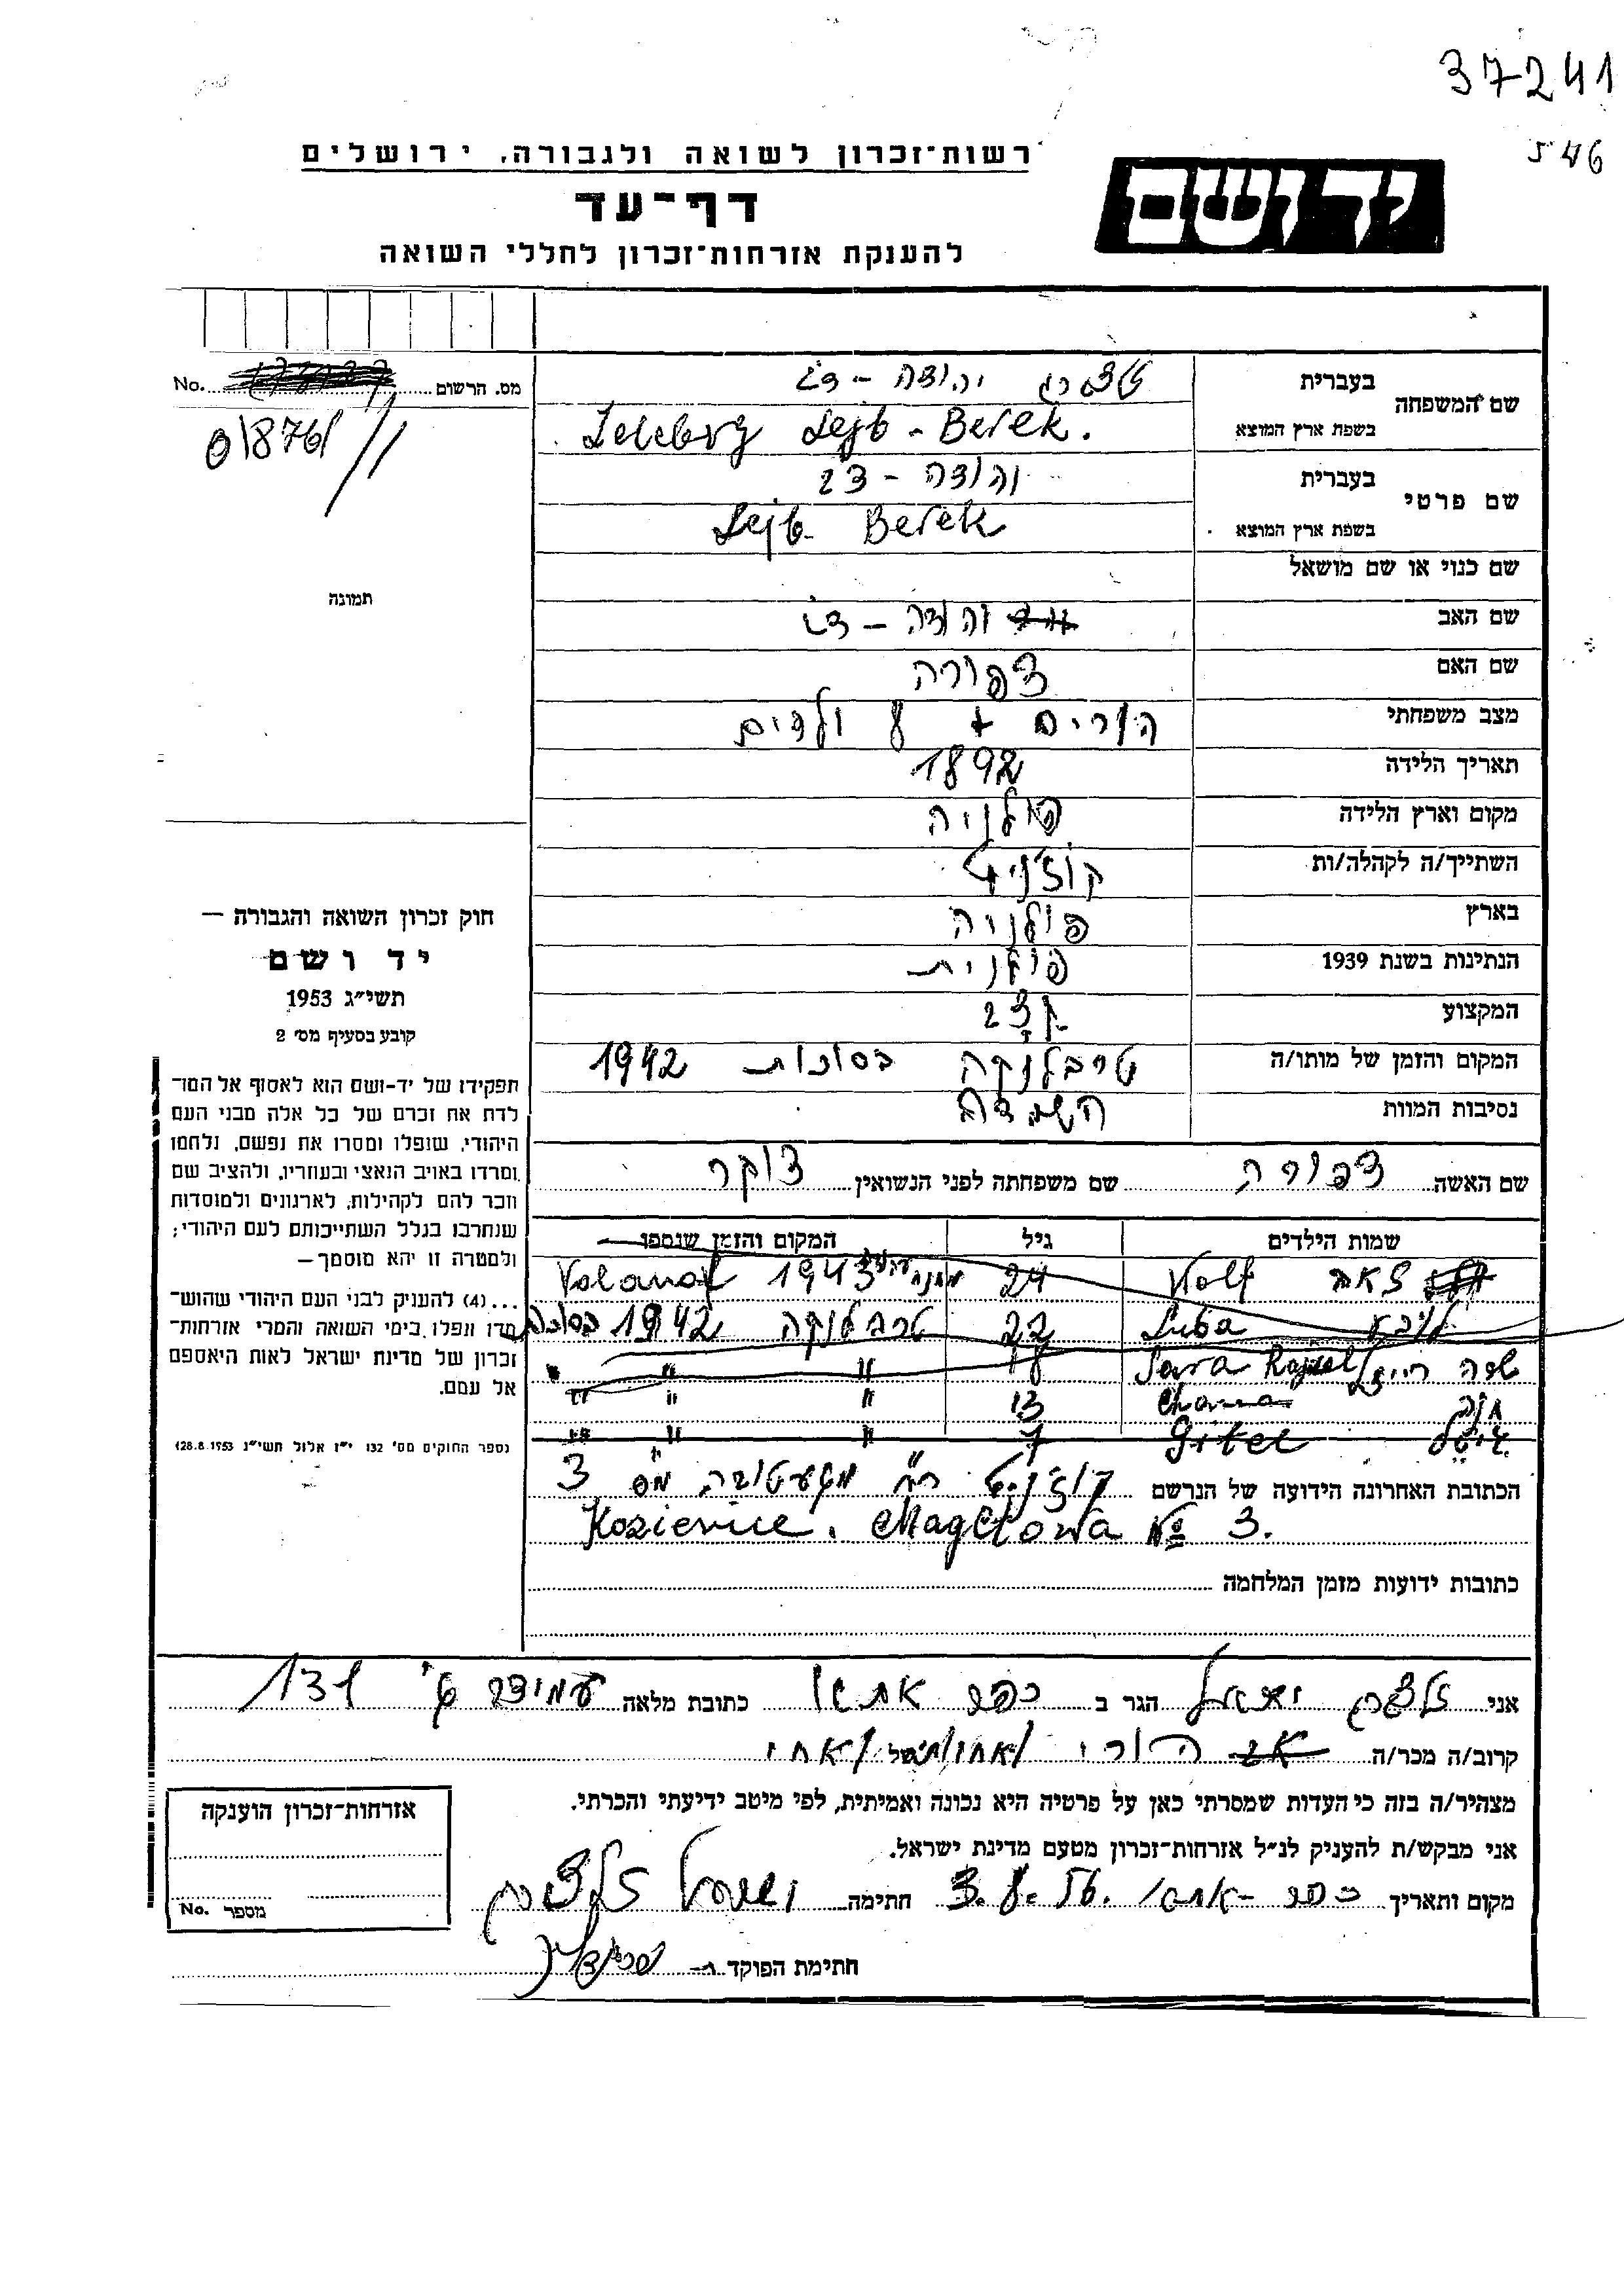 37241
546
רשות־זכרון לשואה ולגבורה, ירושלים
יד ושם
דף־עד
להענקת אזרחות־זכרון לחללי השואה
מס. הרשום No.
01876
שם המשפחה
בעברית יהודה -
בשפת ארץ המוצא Lejb - Berek.
שם פרטי
בעברית יהודה -
בשפת ארץ המוצא Lejb - Berek
שם כנוי או שם מושאל
שם האב יהודה -
שם האם צפורה
מצב משפחתי הורים + ילדים
תאריך הלידה 1892
מקום וארץ הלידה פולניה
השתייך/ה לקהלה/ות קוז'ניץ
בארץ פולניה
הנתינות בשנת 1939 פולנית
המקצוע קצב
המקום והזמן של מותו/ה טרבלינקה בסוכות 1942
נסיבות המוות השמדה
שם האשה צפורה שם משפחתה לפני הנשואין צוקר
שמות הילדים גיל המקום והזמן שנספו
זאב Wolf 24 מחנה 1943
ליבא Luba 22 טרבלינקה 1942 בסוכות
שרה רייזל Sara Rajzel 18 " " "
חנה Channa 13 " " "
גיטל Gitel 7 " " "
הכתובת האחרונה הידועה של הנרשם קוז'ניץ רח' מס 3
Kozienice. Magitowa № 3.
כתובות ידועות מזמן המלחמה
אני זלצברג ישראל הגר ב כפר אתא כתובת מלאה עמידר 131
קרוב/ה מכר/ה הורי /אחיותי/ אחי
מצהיר/ה בזה כי העדות שמסרתי כאן על פרטיה היא נכונה ואמיתית, לפי מיטב ידיעתי והכרתי.
אני מבקש/ת להעניק לנ"ל אזרחות־זכרון מטעם מדינת ישראל.
מקום ותאריך כפר-אתא חתימה ישראל זלצברג
חתימת הפוקד
תמונה
חוק זכרון השואה והגבורה —
יד ושם
תשי"ג 1953
קובע בסעיף מס' 2
תפקידו של יד-ושם הוא לאסוף אל המו־
לדת את זכרם של כל אלה מבני העם
היהודי, שנפלו ומסרו את נפשם, נלחמו
ומרדו באויב הנאצי ובעוזריו, ולהציב שם
וזכר להם לקהילות, לארגונים ולמוסדות
שנחרבו בגלל השתייכותם לעם היהודי;
ולמטרה זו יהא מוסמך—
...(4) להעניק לבני העם היהודי שהוש־
מדו ונפלו בימי השואה והמרי אזרחות־
זכרון של מדינת ישראל לאות היאספם
אל עמם.
(ספר החוקים מס' 132 י"ז אלול תשי"ג 28.8.1953)
אזרחות־זכרון הוענקה
מספר No.